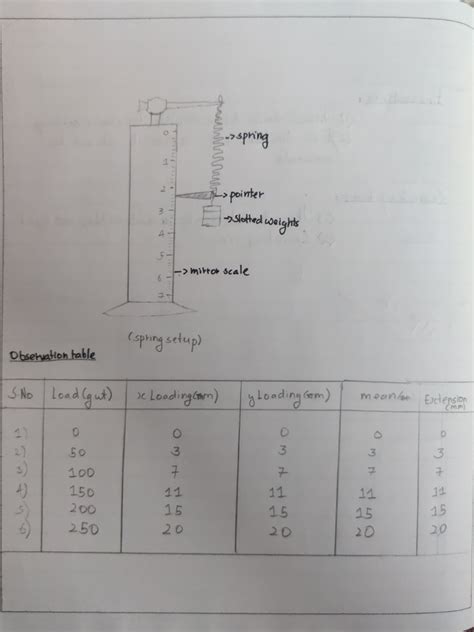 0
1
→spring
2
→pointer
3
→slotted weights
4
5
6
→mirror scale
7
(spring setup)
Observation table
S No Load (gwt) x Loading (mm) y Loading (mm) mean/mm Extension (mm)
1) 0 0 0 0 0
2) 50 3 3 3 3
3) 100 7 7 7 7
4) 150 11 11 11 11
5) 200 15 15 15 15
6) 250 20 20 20 20